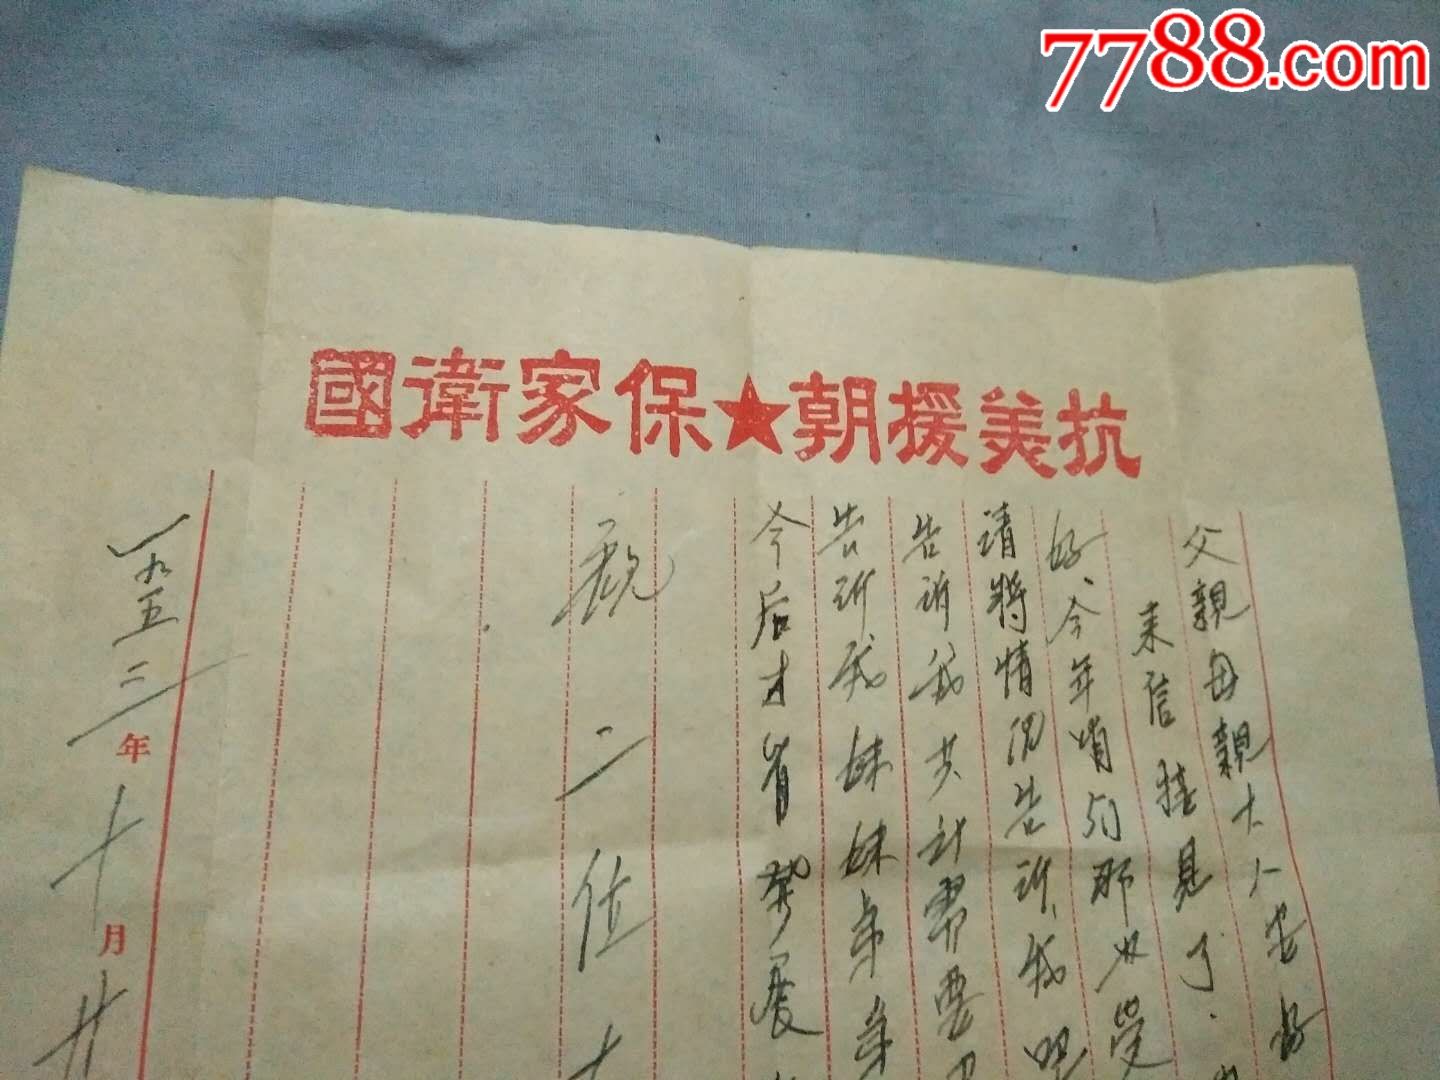 7788.com
抗美援朝★保家衛國
父親母親大人安好
来信接見了.
好、今年
請將情况告訴我吧
告訴我共計需要
告訴我妹妹弟弟
今后才有發展
親二位大
一九五二年十月廿